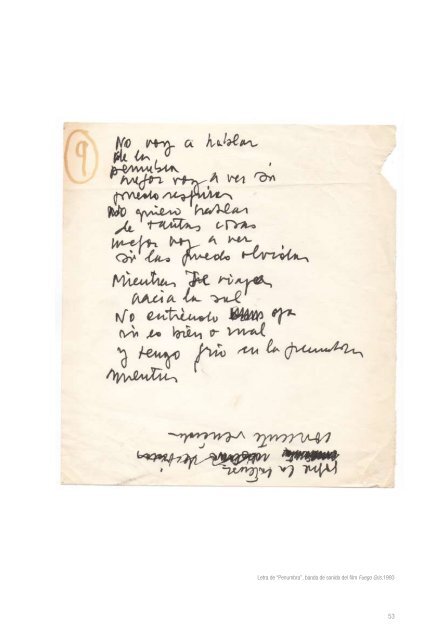 9
No voy a hablar
de la
penumbra
mejor voy a ver si
puedo respirar
No quiero hablar
de tantas cosas
mejor voy a ver
si las puedo olvidar
Mientras
hacia la sal
No entiendo
si es bien o mal
y tengo frio en la penumbra
Mientras
sobre la
Letra de "Penumbra", banda de sonido del film Fuego Gris,1993
53